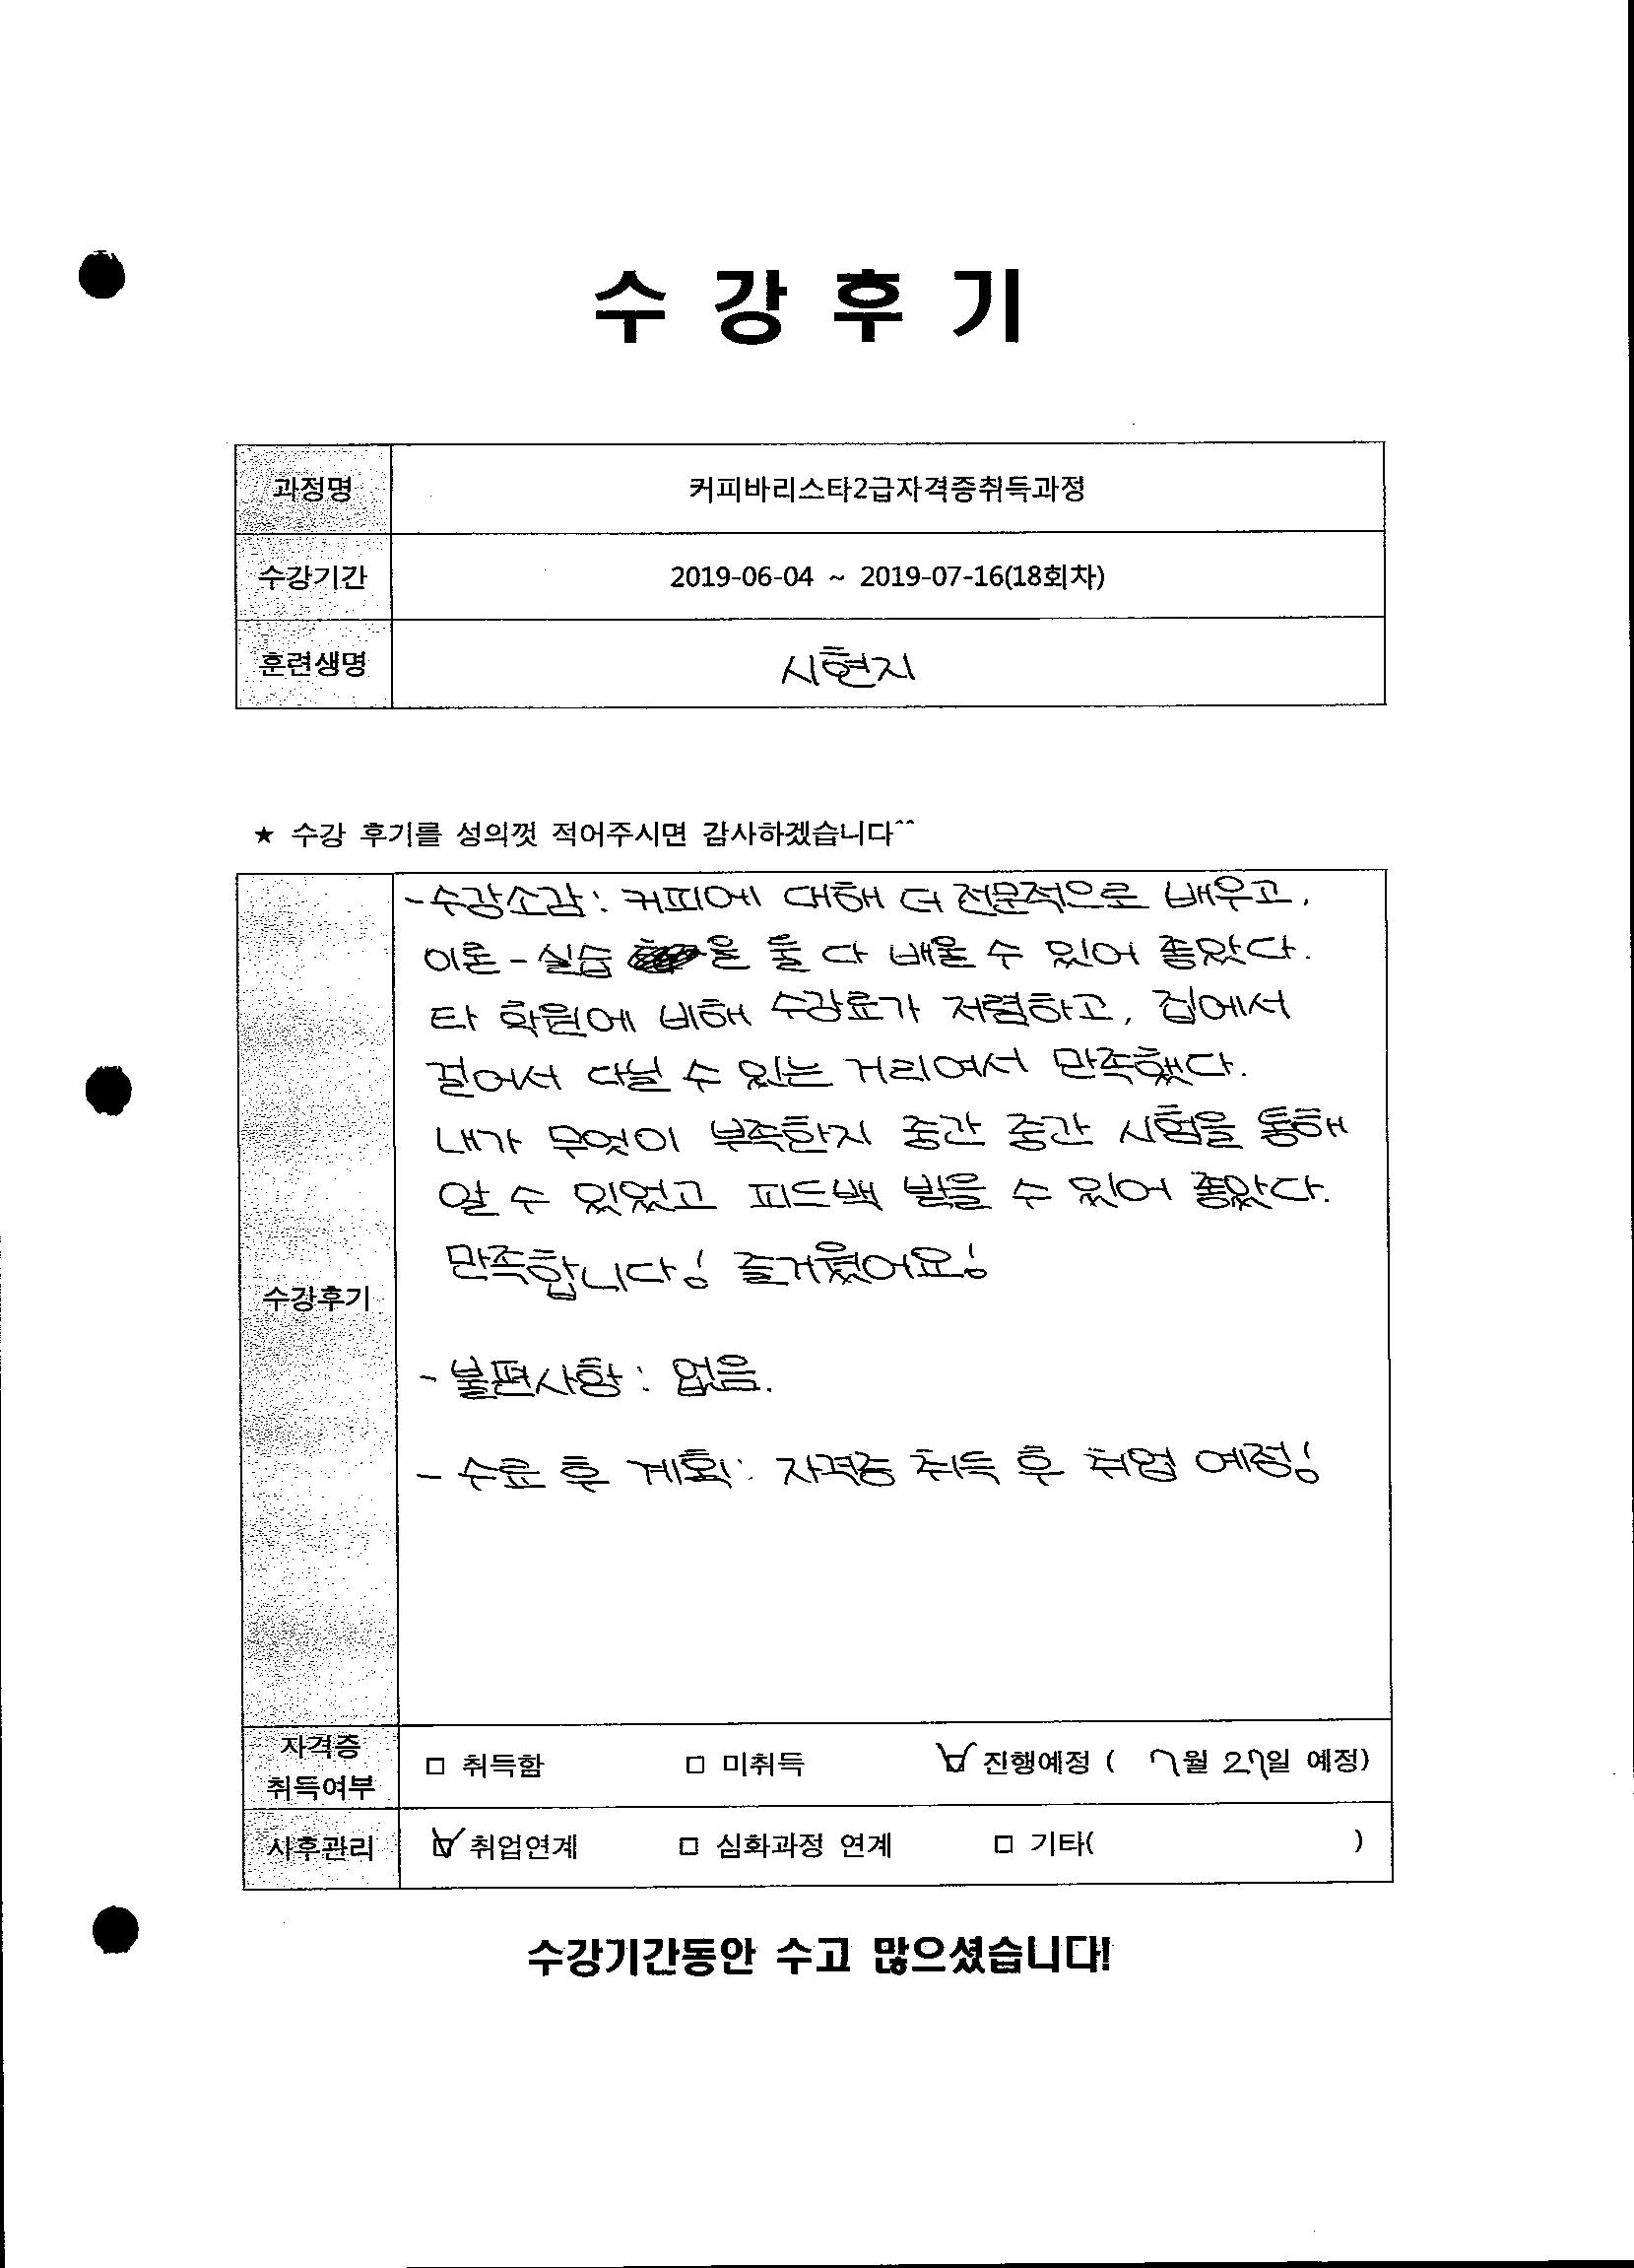 수 강 후 기
과정명 커피바리스타2급자격증취득과정
수강기간 2019-06-04 ~ 2019-07-16(18회차)
훈련생명 시현지
★ 수강 후기를 성의껏 적어주시면 감사하겠습니다^^
수강후기
-수강소감: 커피에 대해 더 전문적으로 배우고,
이론-실습 을 둘 다 배울 수 있어 좋았다.
타 학원에 비해 수강료가 저렴하고, 집에서
걸어서 다닐 수 있는 거리여서 만족했다.
내가 무엇이 부족한지 중간 중간 시험을 통해
알 수 있었고 피드백 받을 수 있어 좋았다.
만족합니다! 즐거웠어요!
- 불편사항 : 없음.
- 수료 후 계획: 자격증 취득 후 취업 예정!
자격증
취득여부
□ 취득함 □ 미취득 ☑ 진행예정 ( 7월 27일 예정)
사후관리 ☑ 취업연계 □ 심화과정 연계 □ 기타( )
수강기간동안 수고 많으셨습니다!